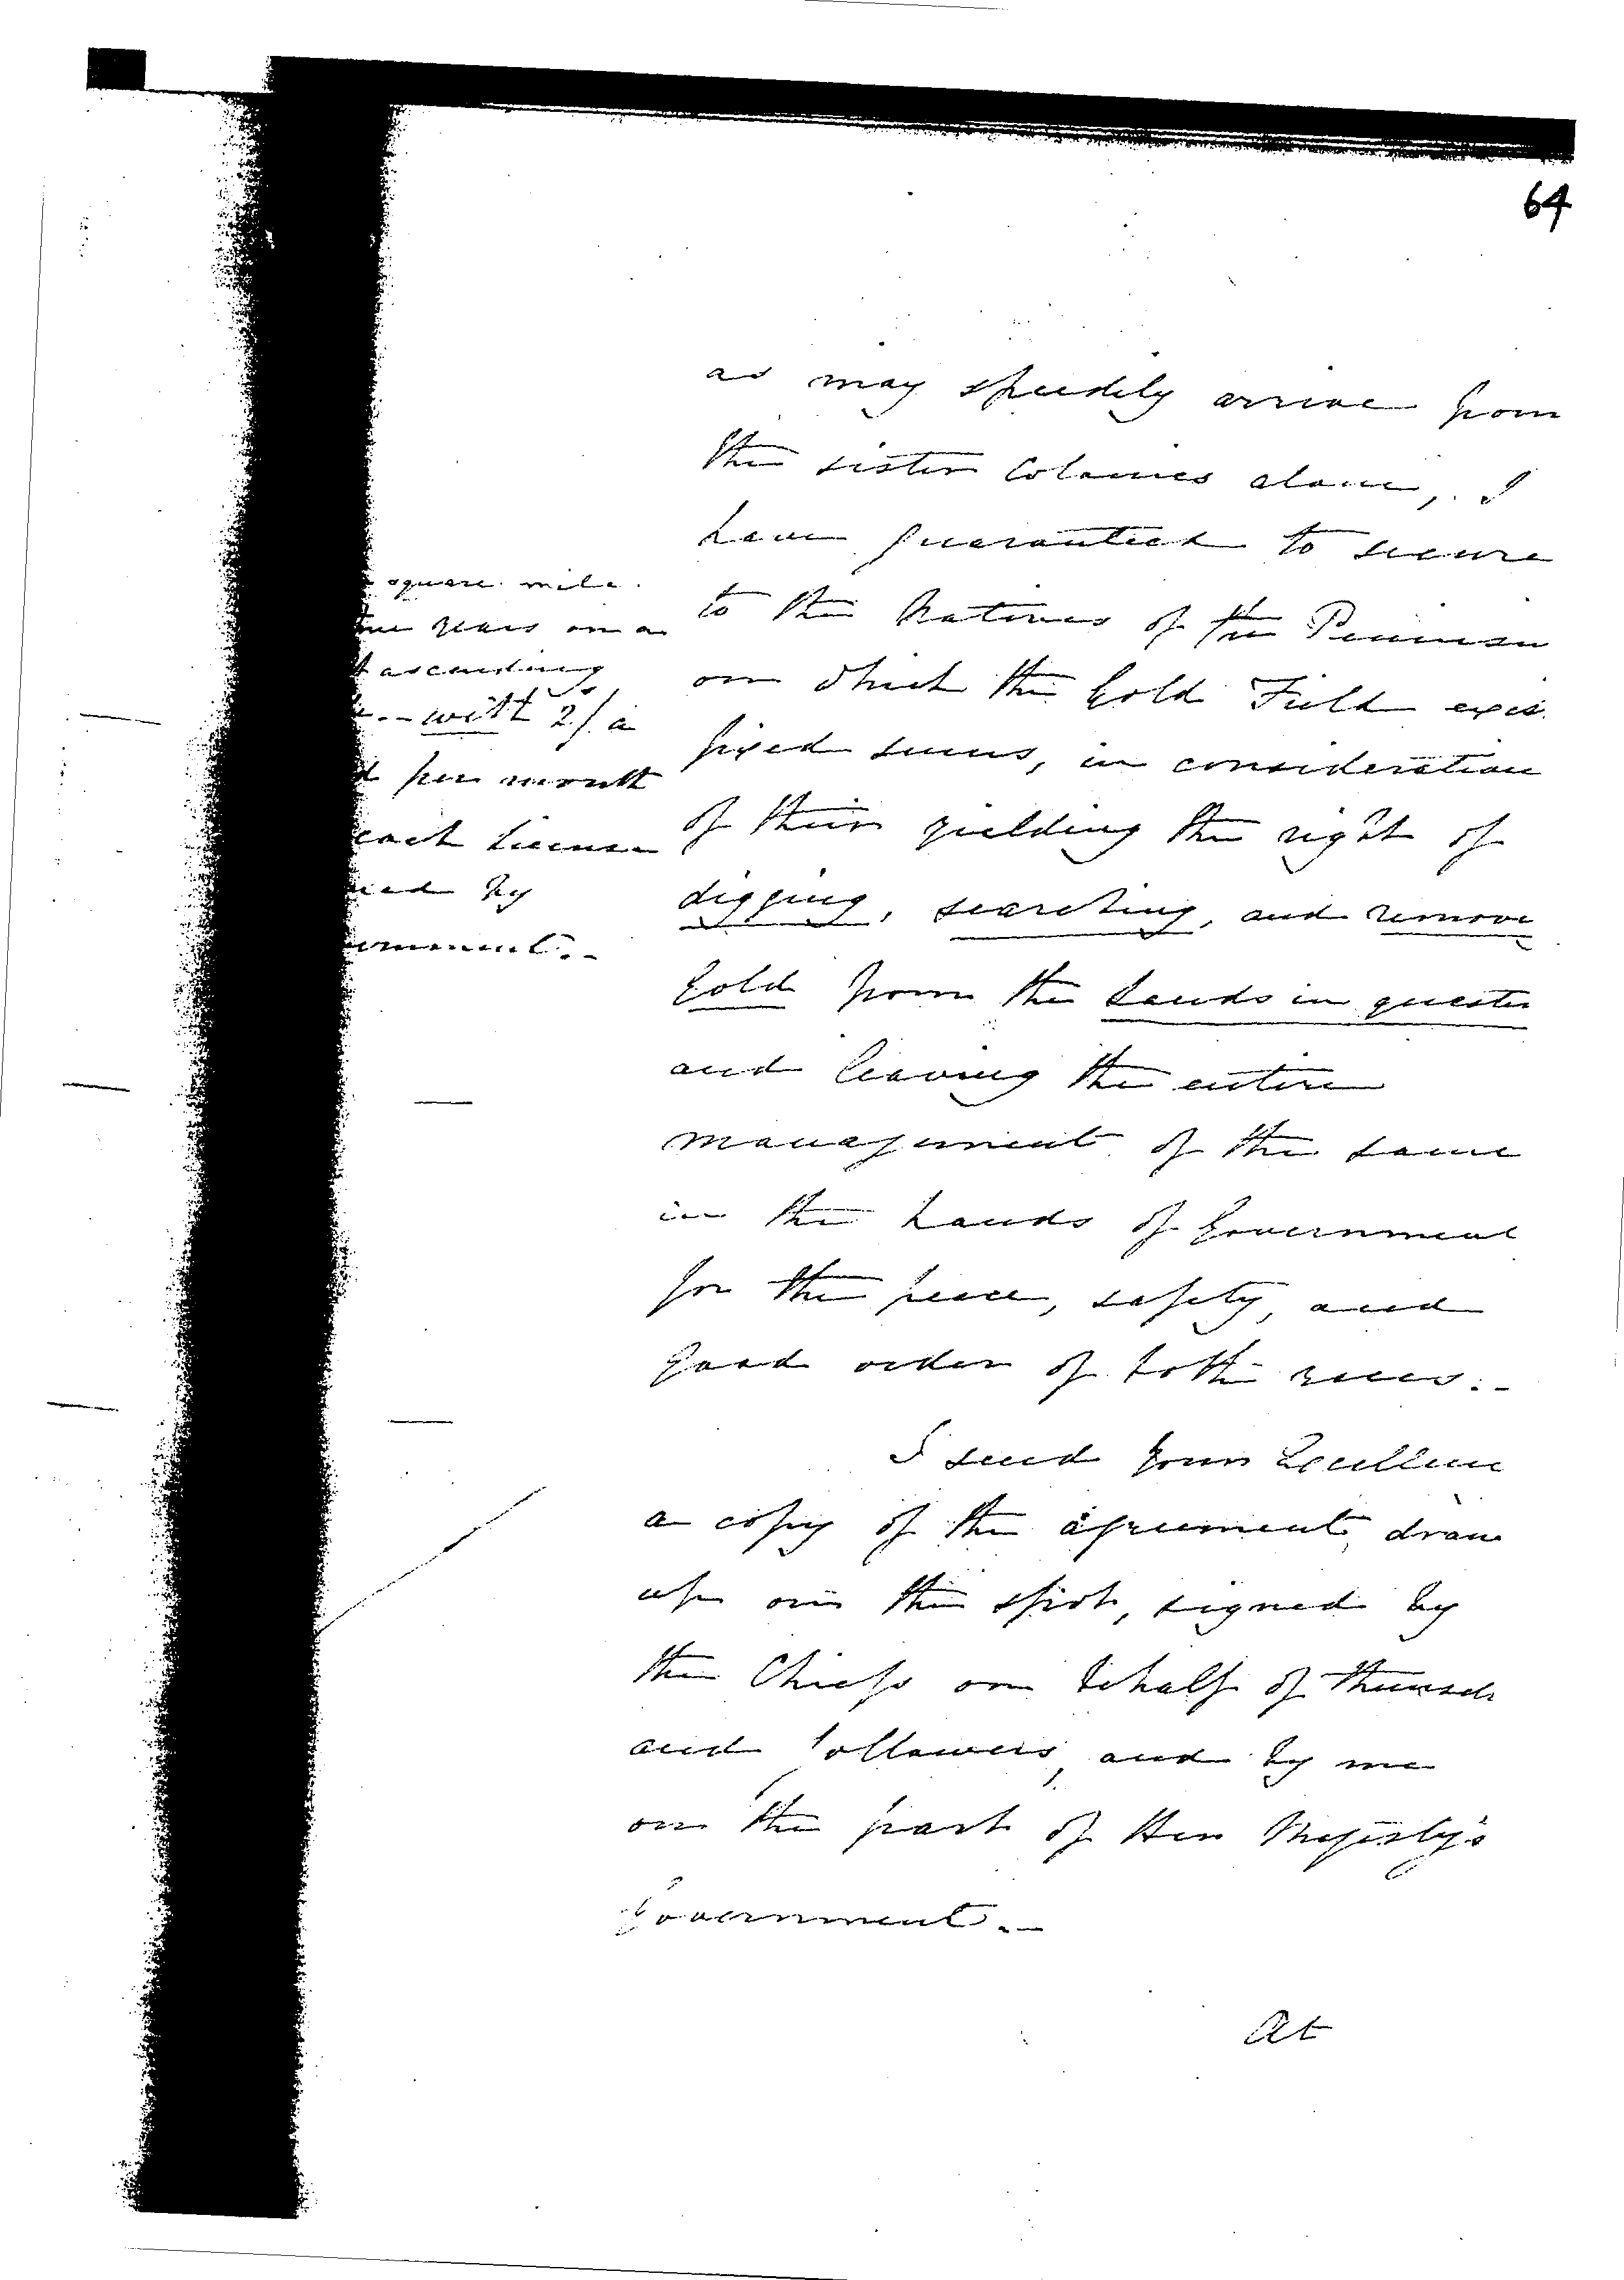 64
as may speedily arrive from
the sister Colonies alone, I
have guaranteed to secure
to the Natives of the Peninsu
on which the Gold Field exis
fixed sums, in consideration
of their yielding the right of
digging, searching, and remove
Gold from the Lands in questio
and leaving the entire
management of the same
in the hands of Government
for the peace, safety, and
good order of both races.-
I send Your Excellenc
a copy of the agreement, drawn
up on the spot, signed by
the Chiefs on behalf of themsel
and followers, and by me
on the part of Her Majesty's
Government.-
At
square mile.
years on a
ascending
with 2/ a
per month
each License
by